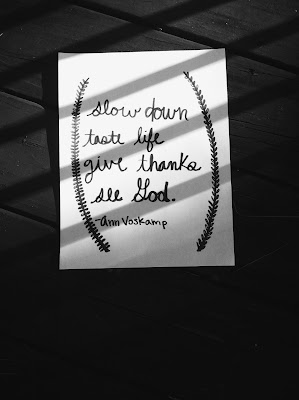 slow down
taste life
give thanks
see God.
-Ann Voskamp